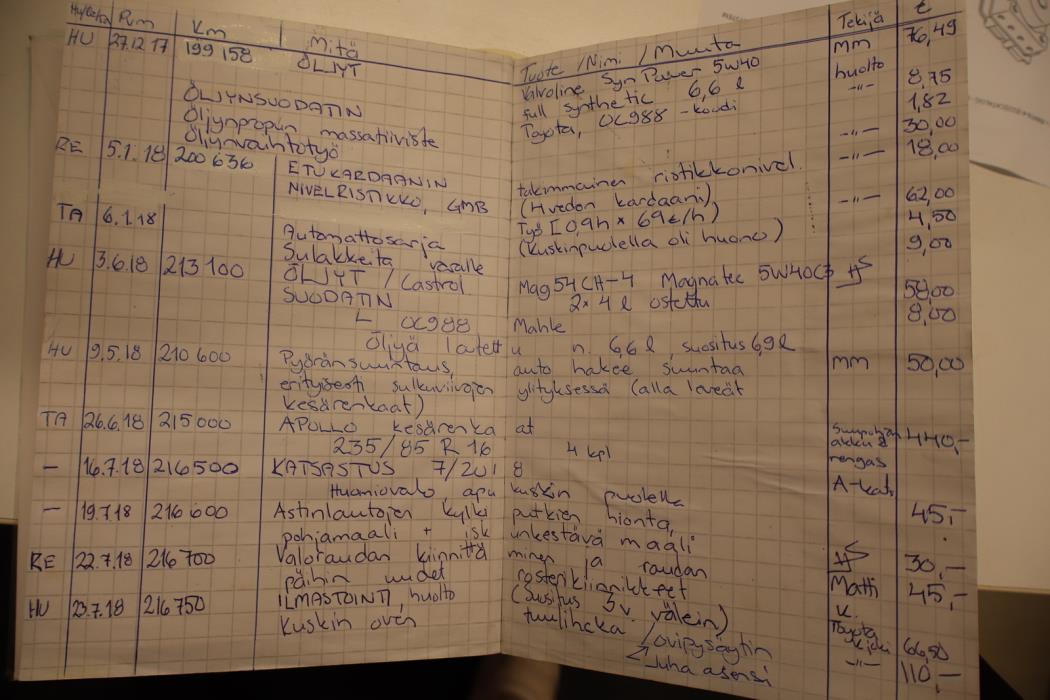 Pvm Km Mitä Tuote /Nimi /Muuta Tekijä €
HU 27.12.17 199 158 ÖLJYT Valvoline SynPower 5W40 MM 76,49
full synthetic 6,6 l huolto
ÖLJYNSUODATIN Toyota, OC988 -koodi -"- 8,75
Öljynpropun massatiiviste 1,82
Öljynvaihtotyö -"- 30,00
RE 5.1.18 200 636 ETUKARDAANIN takimmainen ristikkonivel. -"- 18,00
NIVELRISTIKKO, GMB (4vedon kardaani)
Työ [0,9h x 69€/h) -"- 62,00
TA 6.1.18 (Kuskinpuolella oli huono) 4,50
Automattosarja 9,00
Sulakkeita varalle
HU 3.6.18 213 100 ÖLJYT /Castrol Mag54CH-4 Magnatec 5W40C3
SUODATIN 2x 4 l ostettu 58,00
L OC988 Mahle 8,00
Öljyä laitettu n. 6,6 l, suositus 6,9 l
HU 9.5.18 210 600 Pyöränsuuntaus, auto hakee suuntaa MM 50,00
erityisesti sulkuviivojen ylityksessä (alla leveät
kesärenkaat)
TA 26.6.18 215 000 APOLLO kesärenkaat 440,-
235/85 R 16 4 kpl akku & rengas
- 16.7.18 216500 KATSASTUS 7/2018 A-kats.
Huomiovalo, apukuskin puolella 45,-
- 19.7.18 216 600 Astinlautojen kylkiputkien hionta,
pohjamaali + iskunkestävä maali
RE 22.7.18 216 700 Valoraudan kiinnittäminen ja raudan 30,-
päihin uudet rosterikiinnikkeet Matti 45,-
HU 23.7.18 216 750 ILMASTOINTI, huolto (suositus 5v. välein) K.
Kuskin oven tuulihaka /ovipysäytin Toyota 66,50
Juha asensi -"- 110 -